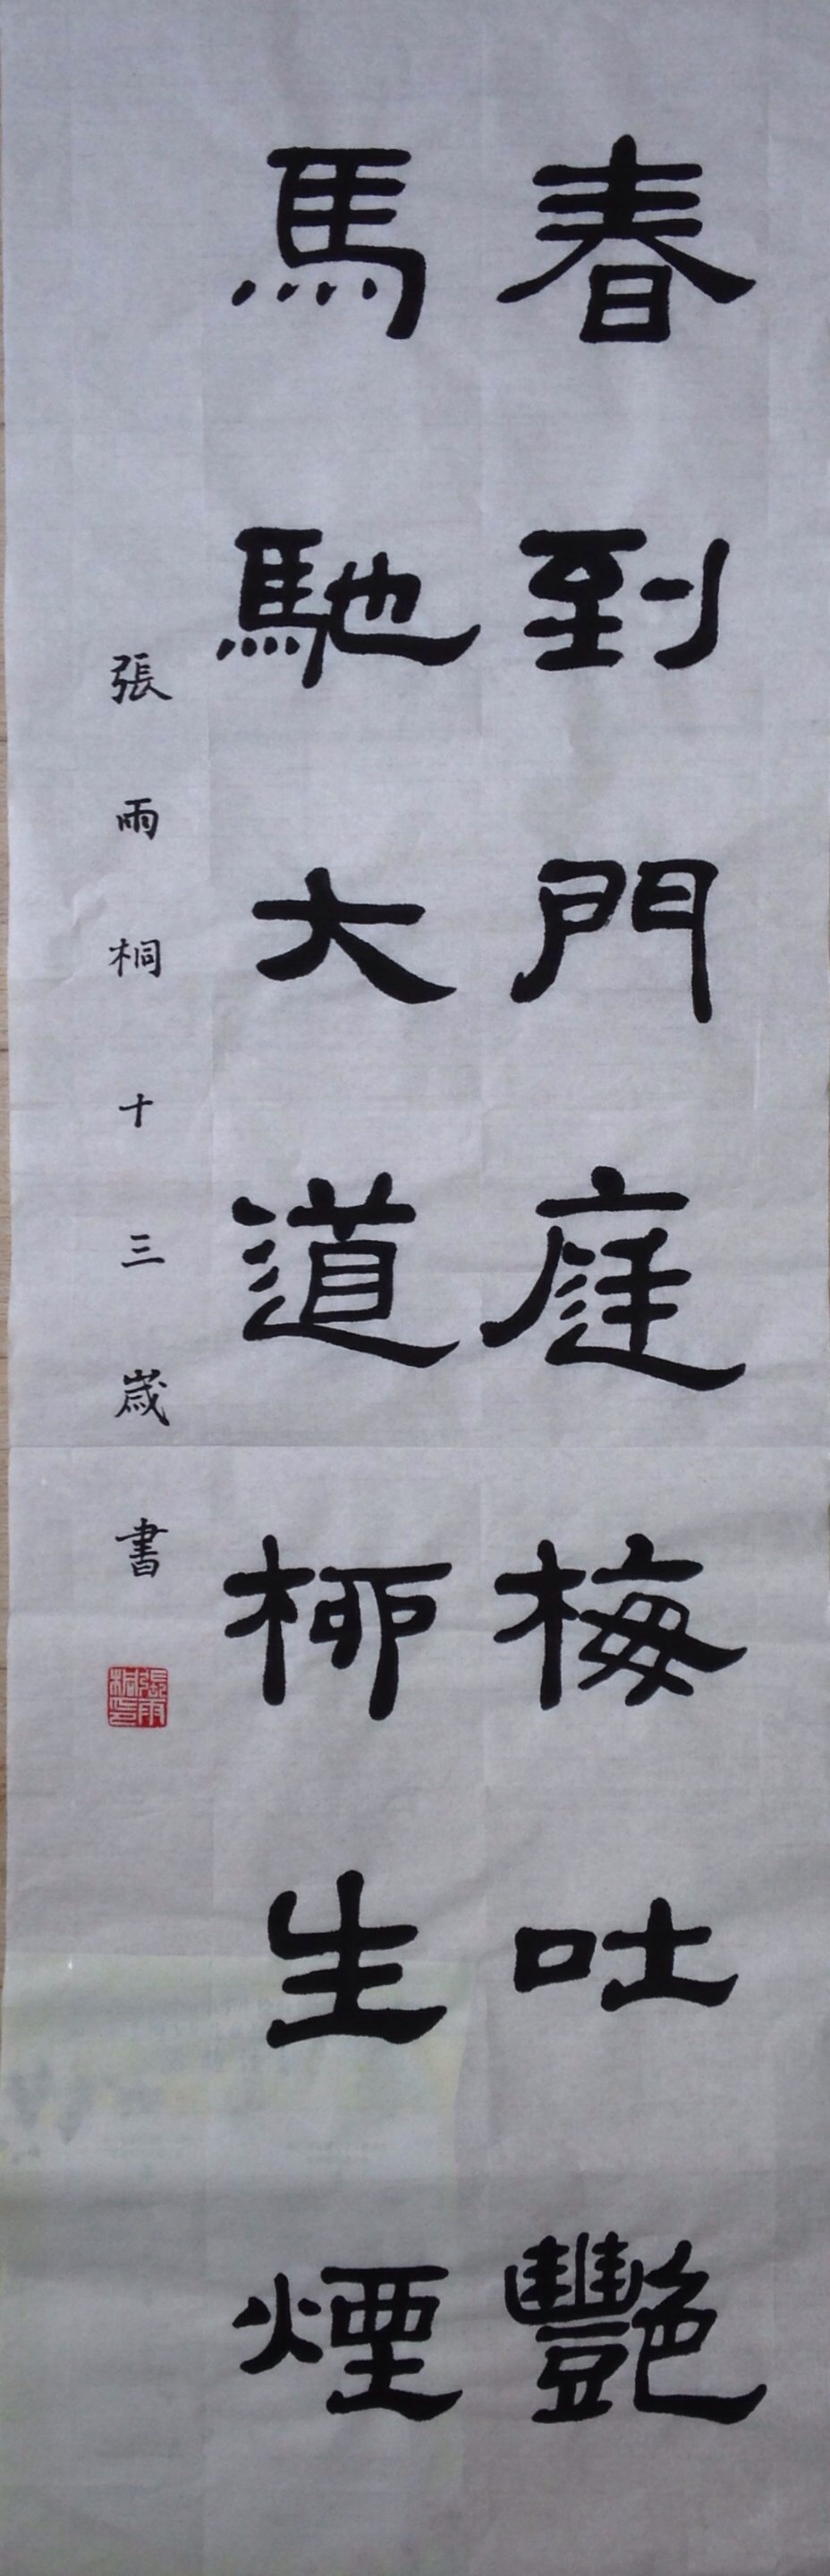 春到門庭梅吐艷
馬馳大道柳生煙
張雨桐十三歲書
張雨桐印